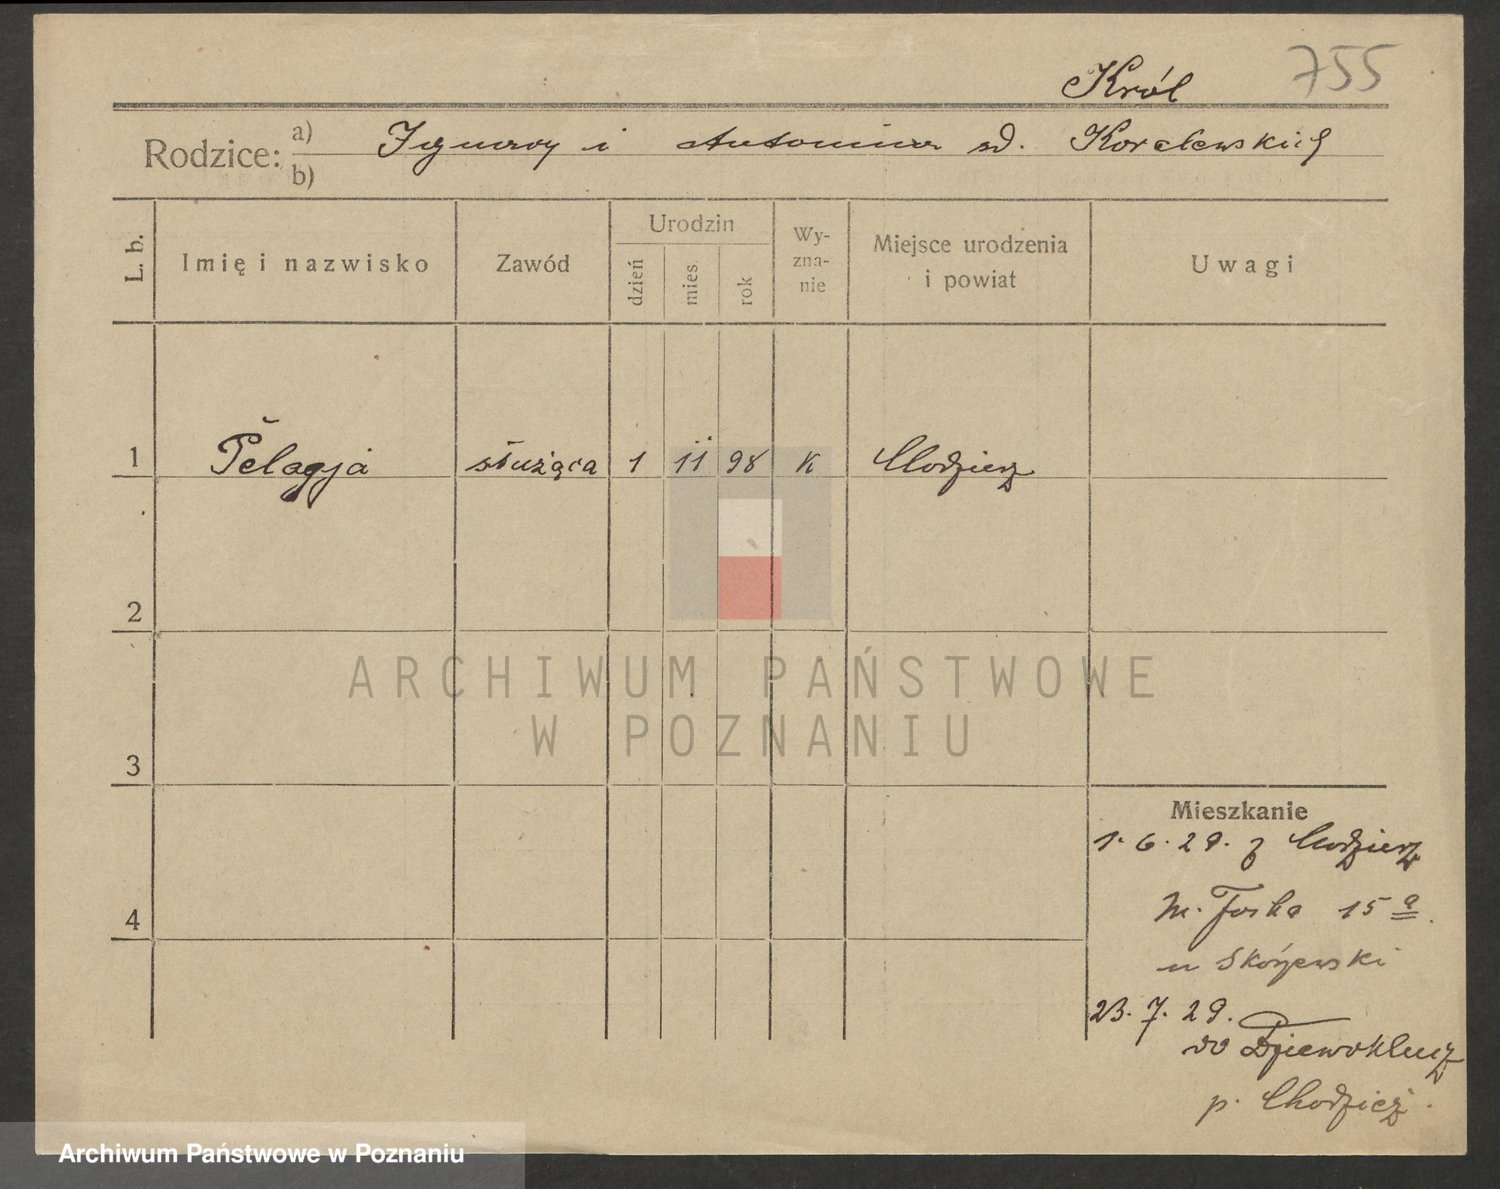 Król 755
Rodzice: a) Ignacy i Antonina zd. Koralewskich
b)
L. b. Imię i nazwisko Zawód Urodzin dzień mies. rok Wy-zna-nie Miejsce urodzenia i powiat Uwagi
1 Pelagja służąca 1 11 98 K Chodzież
2
ARCHIWUM PAŃSTWOWE
W POZNANIU
3
Mieszkanie
1. 6. 29. z Chodzież
4
M. Foska 15 a.
u Skórzewski
23. 7. 29.
do Dziewoklucz
p. Chodzież.
Archiwum Państwowe w Poznaniu